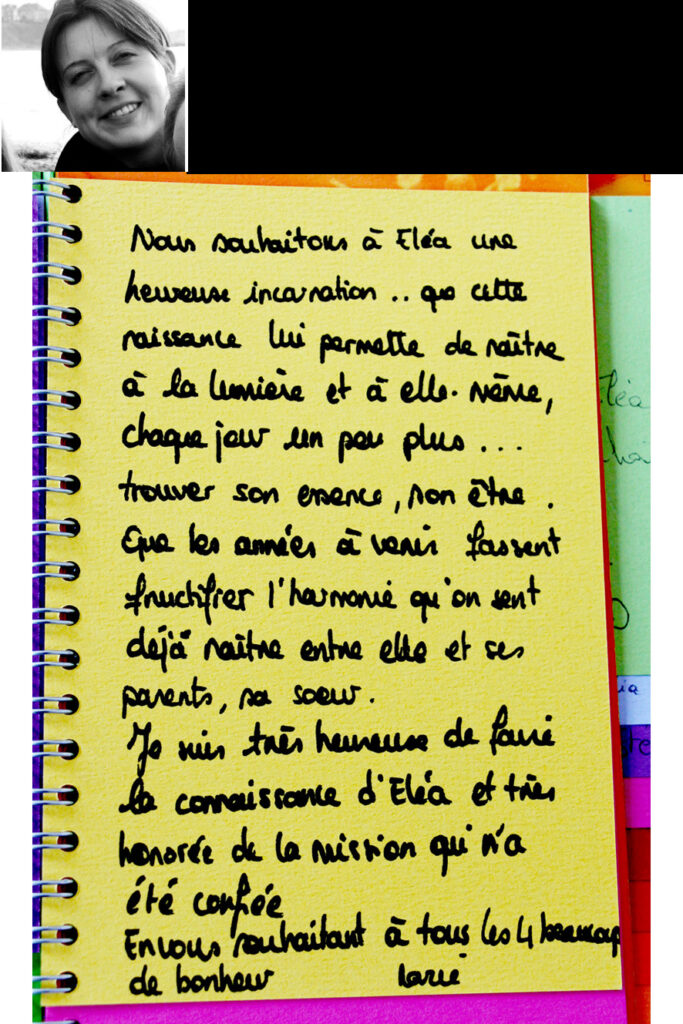 Nous souhaitons à Eléa une
heureuse incarnation .. que cette
naissance lui permette de naître
à la lumière et à elle-même,
chaque jour un peu plus ...
trouver son essence, son être.
Que les années à venir fassent
fructifier l'harmonie qu'on sent
déjà naître entre elle et ses
parents, sa soeur.
Je suis très heureuse de faire
la connaissance d'Eléa et très
honorée de la mission qui m'a
été confiée
En vous souhaitant à tous les 4 beaucoup
de bonheur
Eléa